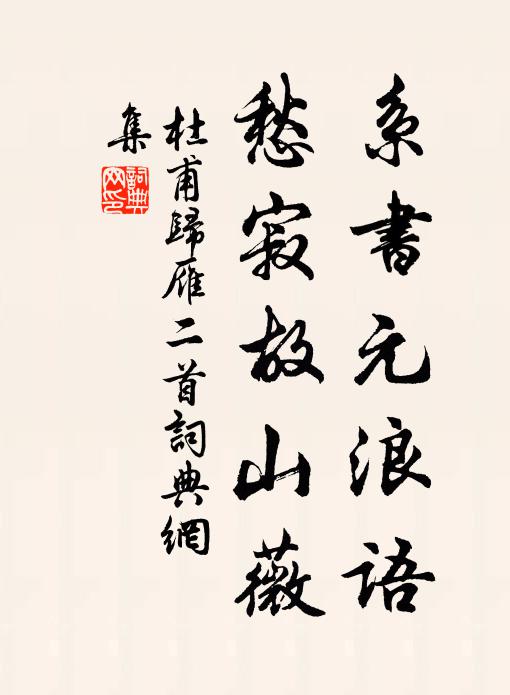 系書元浪语
愁寂故山薇
杜甫歸雁二首詞典網
集
詞典网印